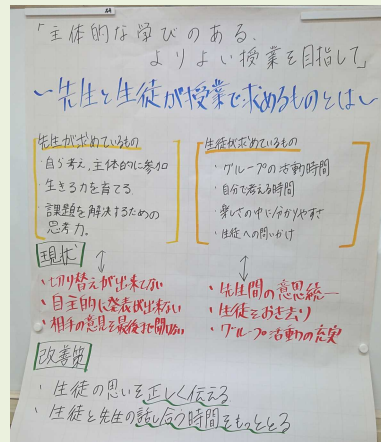 「主体的な学びのある、
よりよい授業を目指して」
～先生と生徒が授業で求めるものとは～
先生が求めているもの
・自ら考え、主体的に参加
・生きる力を育てる
・課題を解決するための
思考力。
生徒が求めているもの
・グループの活動時間
・自分で考える時間
・楽しさの中に分かりやすさ
・生徒への問いかけ
現状
・切り替えが出来てない
・自主的に発表が出来ない
・相手の意見を最後まで聞かない
・先生間の意思統一
・生徒をおき去り
・グループ活動の充実
改善策
・生徒の思いを正しく伝える
・生徒と先生の話し合う時間をもっととる